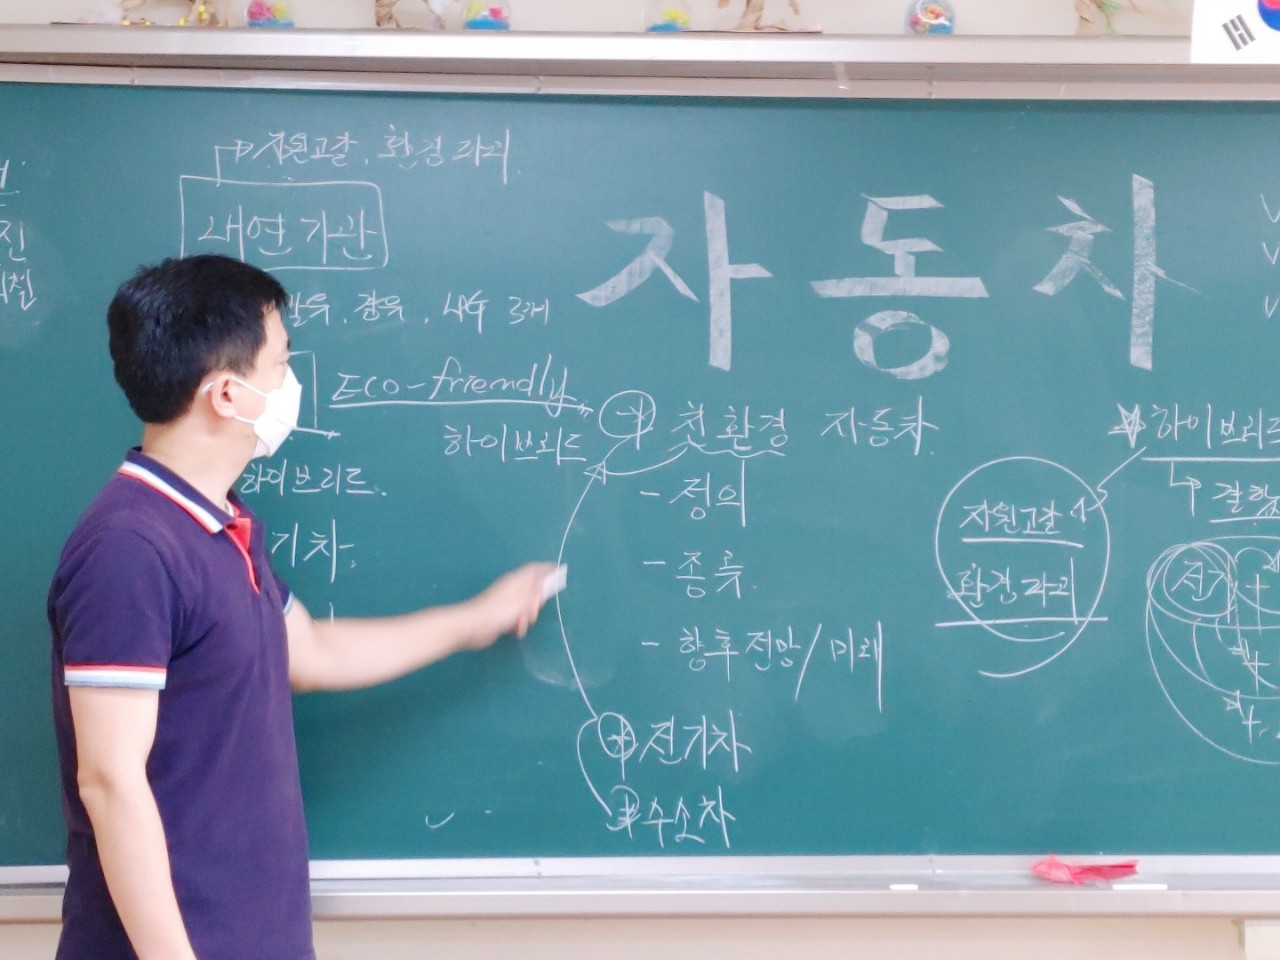 자원고갈, 환경파괴
내연기관
휘발유, 경유, 
Eco-friendly
하이브리드
하이브리드.
기차,
자동차
친환경 자동차.
- 정의
- 종류.
- 향후전망/미래
전기차
수소차
하이브리드
자원고갈
환경파괴
전기
진